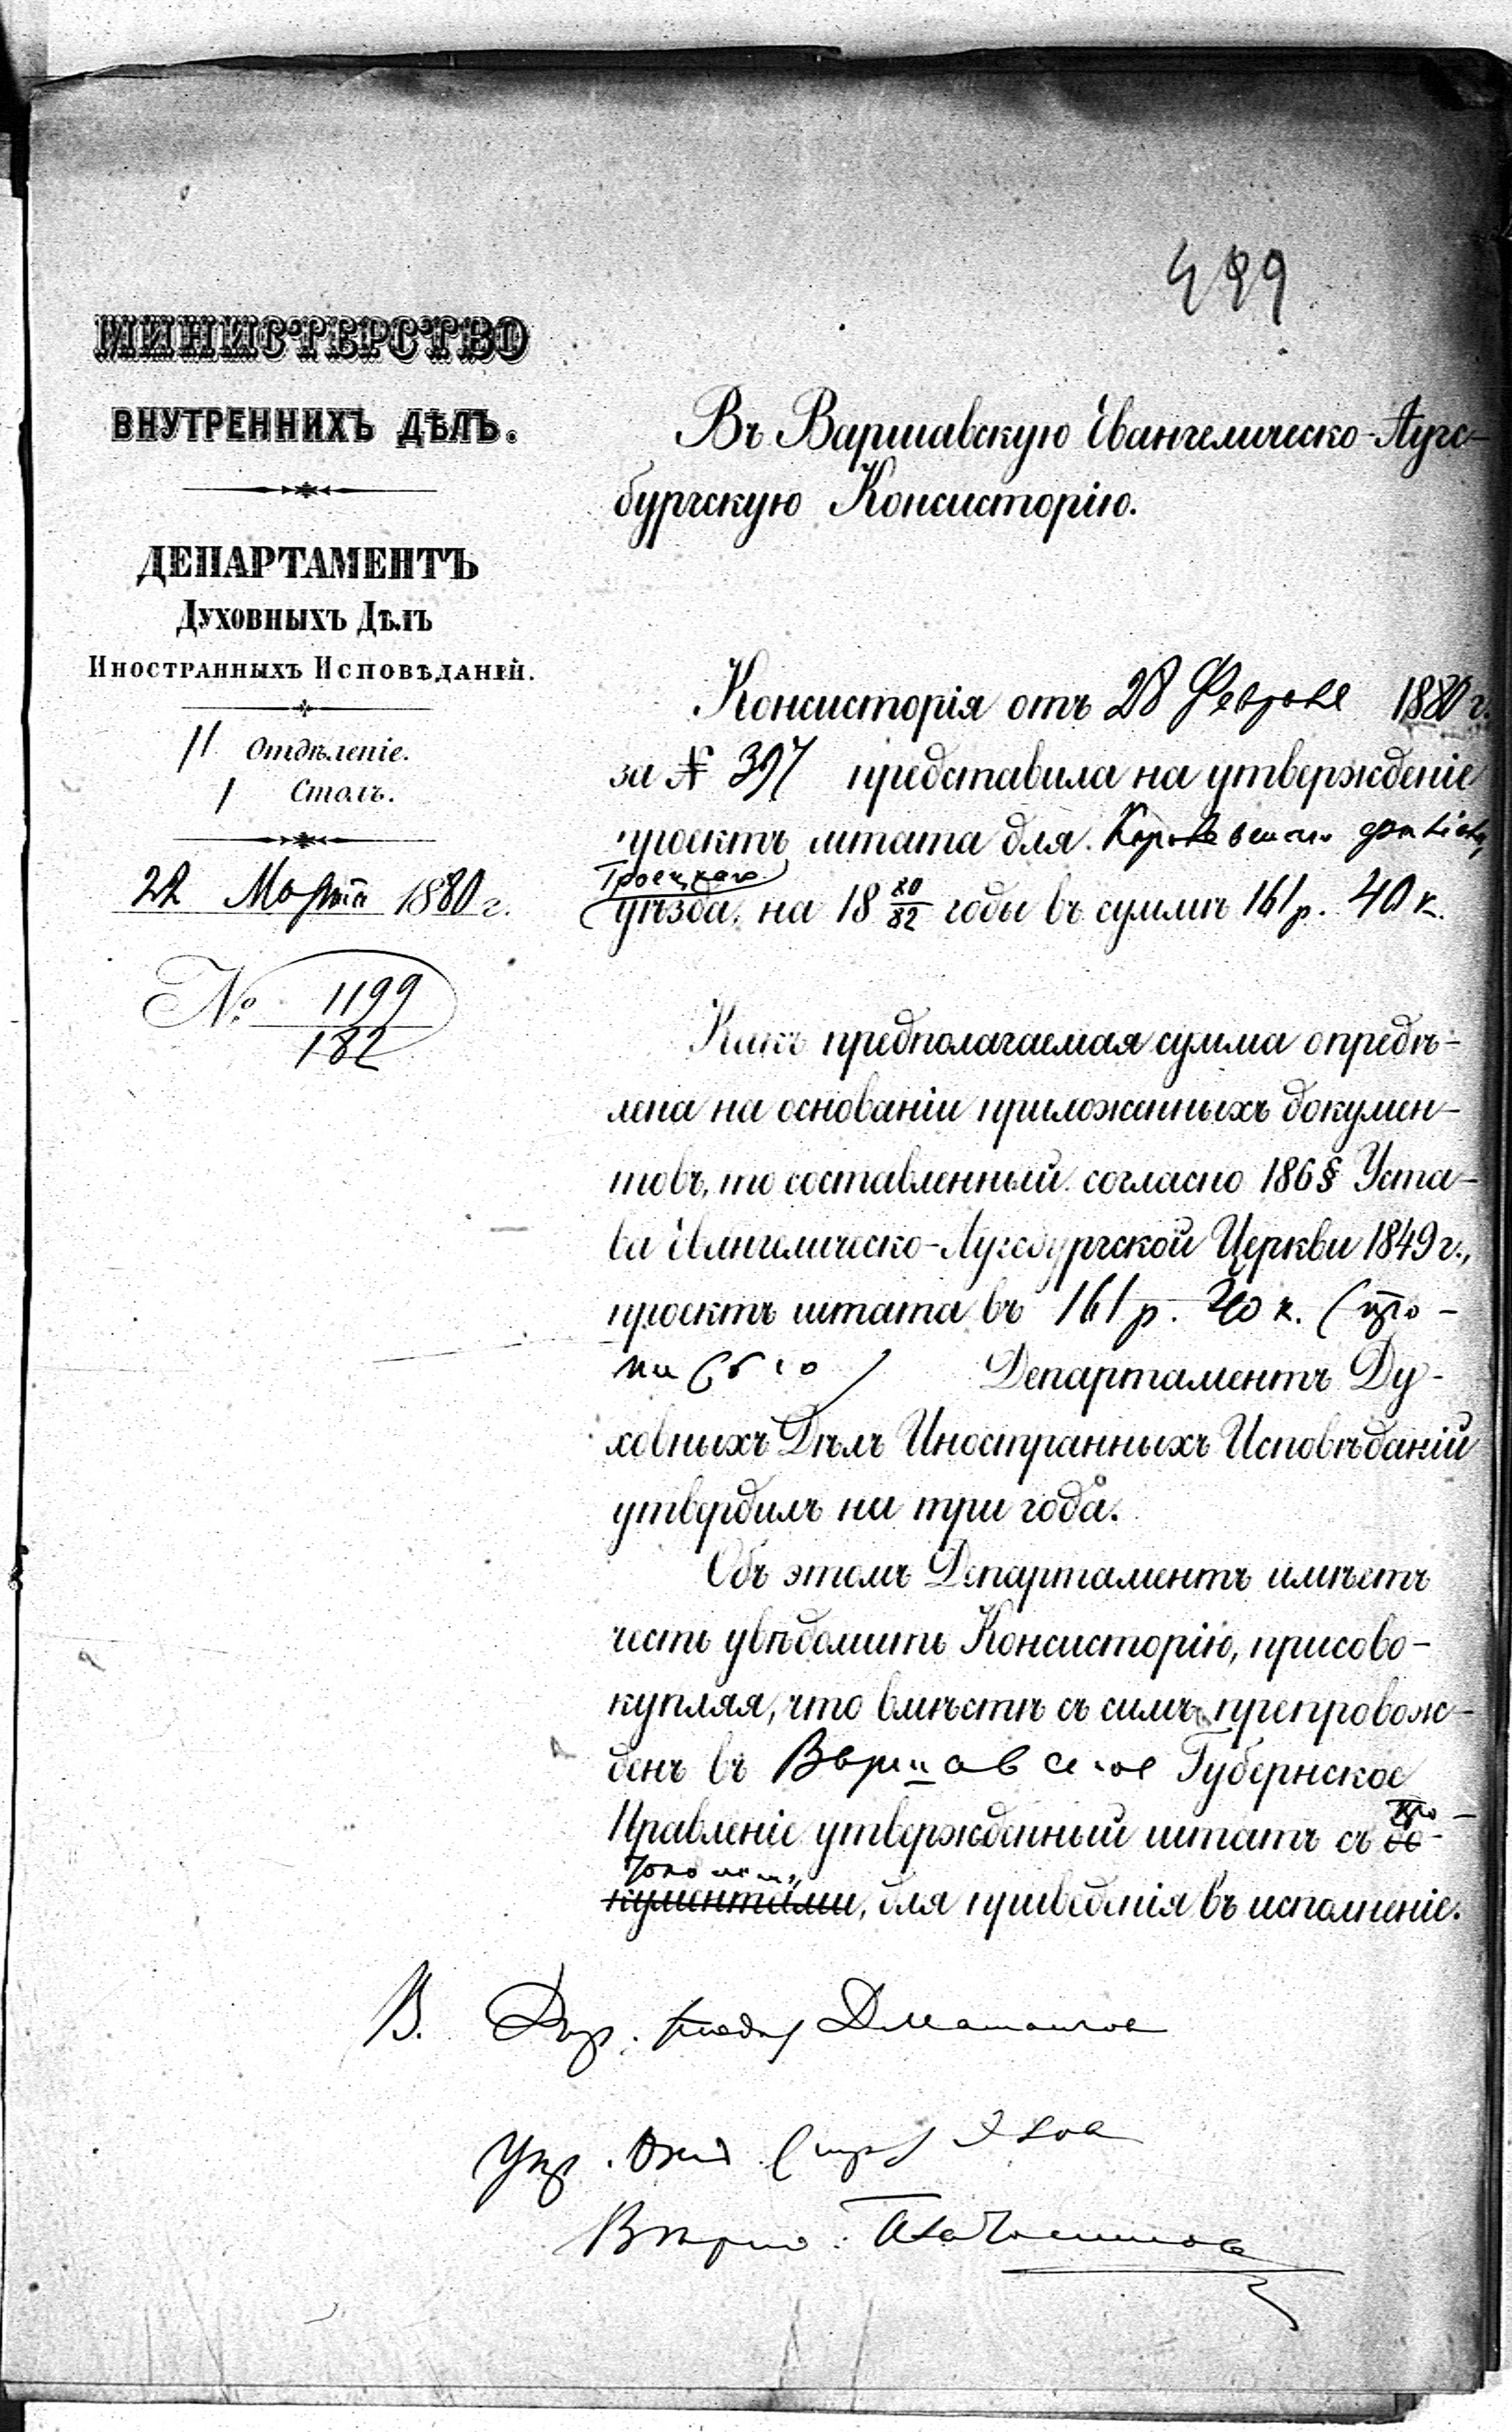 499
МИНИСТЕРСТВО
ВНУТРЕННИХЪ ДѢЛЪ.
ДЕПАРТАМЕНТЪ
ДУХОВНЫХЪ ДѢЛЪ
ИНОСТРАННЫХЪ ИСПОВѢДАНІЙ.
II Отдѣленіе.
I Столъ.
22 Марта 1880 г.
№ 1199
182
Въ Варшавскую Евангелическо-Аугс-
бургскую Консисторію.
Консисторія отъ 28 Февраля 1880 г.
за № 397 представила на утвержденіе
проектъ штата для
уѣзда, на 18 80/82 годы въ суммѣ 161 р. 40 к.
Какъ предполагаемая сумма опредѣ-
лена на основаніи приложенныхъ докумен-
товъ, то составленный согласно 186 § Уста-
ва Евангелическо-Аугсбургской Церкви 1849 г.,
проектъ штата въ 161 р. 40 к. (про-
писью) Департаментъ Ду-
ховныхъ Дѣлъ Иностранныхъ Исповѣданій
утвердилъ на три года.
Объ этомъ Департаментъ имѣетъ
честь увѣдомить Консисторію, присово-
купляя, что вмѣстѣ съ симъ препровож-
денъ въ Варшавское Губернское
Правленіе утвержденный штатъ съ до- про-
кументами токолом, для приведенія въ исполненіе.
В. Дир. (подп)
Упр. Отд (подп)
Вѣрно: